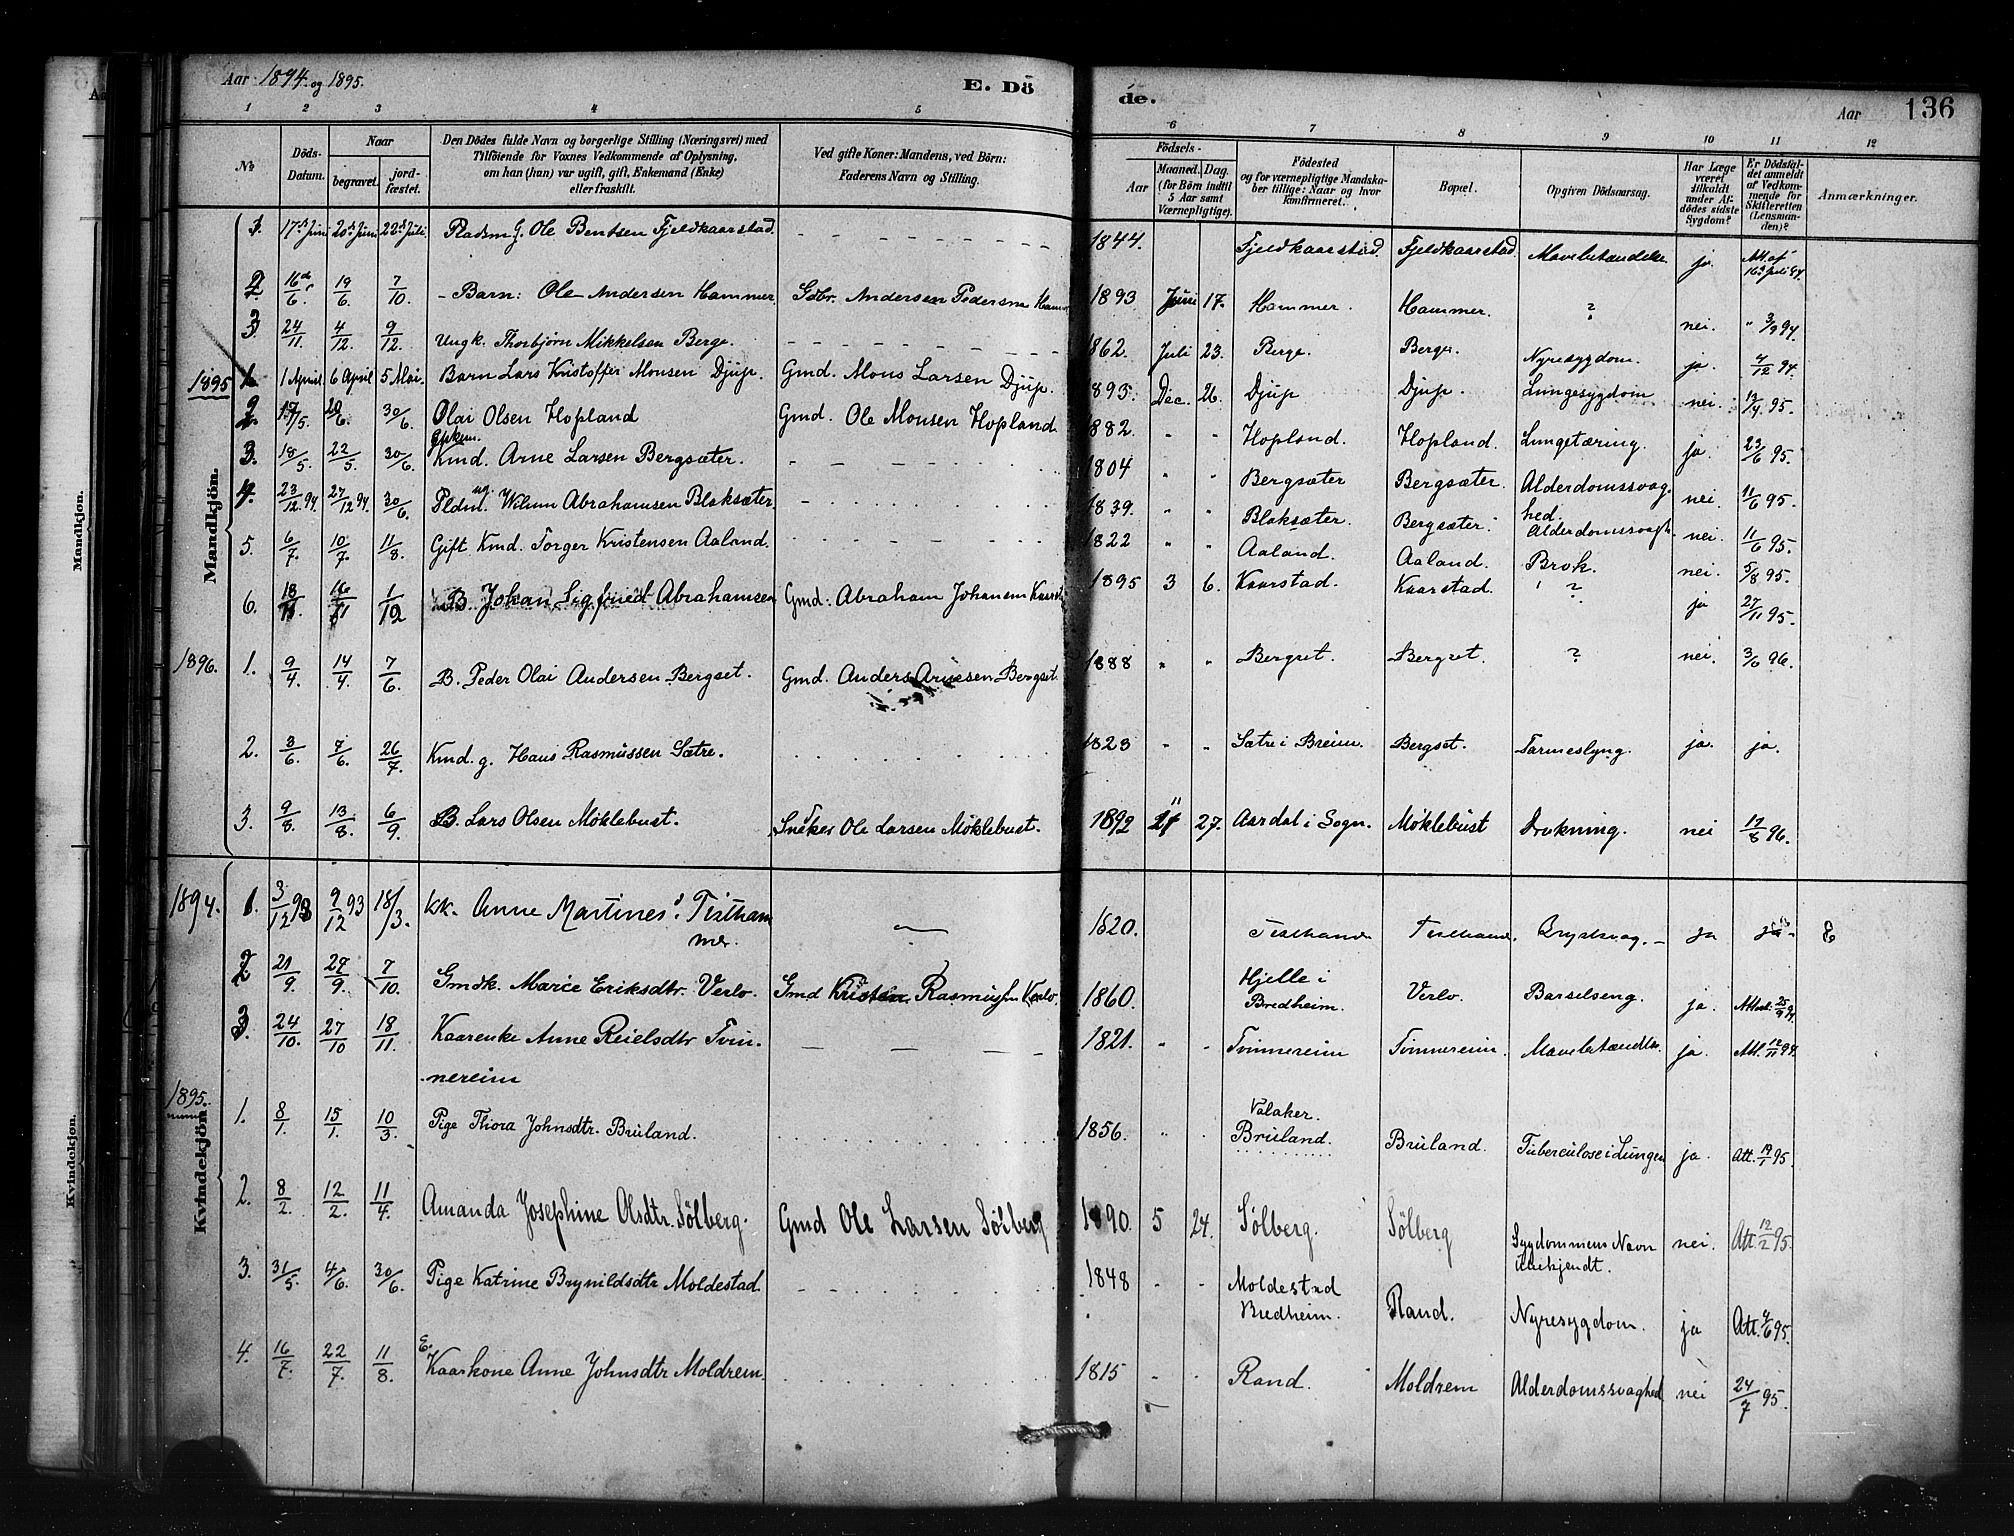 Aar 1894 og 1895. E. Dö de. Aar 136
1 2 3 4 5 6 7 8 9 10 11 12
No Döds-Datum. Naar begravet. jord-fæstet. Den Dödes fulde Navn og borgerlige Stilling (Næringsvei) med Tilföiende for Voxnes Vedkommende af Oplysning, om han (hun) var ugift, gift, Enkemand (Enke) eller fraskilt. Ved gifte Koner: Mandens, ved Börn: Faderens Navn og Stilling. Födsels- Aar Maaned. Dag. (for Börn indtil 5 Aar samt Værnepligtige). Födested og for værnepligtige Mandska-ber tillige: Naar og hvor konfirmeret. Bopæl. Opgiven Dödsaarsag. Har Læge været tilkaldt under Af-dödes sidste Sygdom? Er Dödsfal-det anmeldt af Vedkom-mende for Skifteretten (Lensman-den)? Anmærkninger.
Mandkjön.
1 17de Juni 20de Juni 22de Juli. Pladsm. G. Ole Bentsen Fjeldkaarstad. 1844. Fjeldkaarstad. Fjeldkaarstad. Mavebetændelse ja.
2. 16/6 19/6 7/10. Barn: Ole Andersen Hammer Gbr. Andersen Pedersen 1893 Juni 17. Hammer. Hammer. ? nei. " 3/9 94.
3. 24/11. 4/12. 9/12. Ungk. Thorbjørn Mikkelsen Berge. 1862. Juli 23. Berge. Berge. Nyresygdom. ja. 4/12 94.
1895 1. 1 April 6 April 5 Mai. Barn Lars Kristoffer Monsen Djup. Gmd. Mons Larsen Djup. 1893. Dec. 26. Djup Djup. Lungesygdom nei. 12/4 95.
2. 17/5. 20/6. 30/6. Olai Olsen Hopland Gmd. Ole Monsen Hopland 1882. " " Hopland. Hopland. Lungetæring. ja. 23/6 95.
3. 18/5. 22/5. 30/6. Kmd. Arne Larsen Bergsæter. 1804 " " Bergsæter Bergsæter. Alderdomssvag-hed. nei. 11/6 95.
4. 23/12 94. 27/12 94. 30/6. ug. Wilum Abrahamsen Blaksæter. 1839. " " Blaksæter. Bergsæter. Alderdomssvagh. nei. 11/6 95.
5. 6/7. 10/7. 11/8. Gift Kmd. Torger Kristensen Aaland. 1822 " " Aaland. Aaland. Brok. nei. 5/8 95.
6. 18/11. 16/11 1/12 B. Johan Sigfried Abrahamsen Gmd. Abraham Johansen 1895 3 6. Kaarstad. Kaarstad. ? ja 27/11 95.
1896. 1. 9/4. 14/4. 7/6. B. Peder Olai Andersen Bergset. Gmd. Anders Arnesen Bergset. 1888 " " Bergset. Bergset. ? nei. 3/6 96.
2. 3/6. 7/6. 26/7. Kmd. g. Hans Rasmussen Sætre. 1823 " " Sætre i Breim. Bergset. Tarmeslyng. ja. ja.
3. 9/8. 13/8. 6/9. B. Lars Olsen Møklebust. Snekker Ole Larsen Møklebust. 1892 11 27. Aardal i Sogn. Møklebust Drukning. nei 12/8 96.
Kvindekjön.
1894. 1. 3/12 93 9/12 93 18/3. Kk. Anne Martines d. Tistham-mer. 1820. ja ja
2. 21/9. 27/9. 7/10. Gmdk. Marie Eriksdtr. Verlo. Gmd Kristen Rasmussen Verlo. 1860. Hjelle i Bredheim. Verlo. Barselseng. ja.
3. 24/10. 27/10 18/11. Kaarenke Anne Reielsdtr Tvin-nereim 1821. " " Tvinnereim Tvinnereim. Mavebetændelse. ja. Att. 12/11 94.
1895. 1. 8/1. 15/1. 10/3. Pige Thora Johnsdtr. Bruland. 1856. " " Valaker. Bruland. Bruland. Tuberculose i Lungen ja. Att. 19/1 95.
2. 8/2. 12/2. 11/4. Amanda Josephine Olsdtr. Sölberg. Gmd Ole Larsen Sölberg 1890. 5 24. Sölberg. Sölberg Sygdommens Navn ubekjendt. nei. Att. 12/2 95.
3. 31/5. 4/6. 30/6. Pige Katrine Brynildsdtr Moldestad. 1848 " " Moldestad Bredheim. Rand. Nyresygdom. ja Att. 4/6 95.
4. 16/7. 22/7. 11/8. E. Kaarkone Anne Johnsdtr Moldrem. 1815 " " Rand. Moldrem Alderdomssvaghed nei 24/7 95.
Mandkjön.
Kvindekjön.